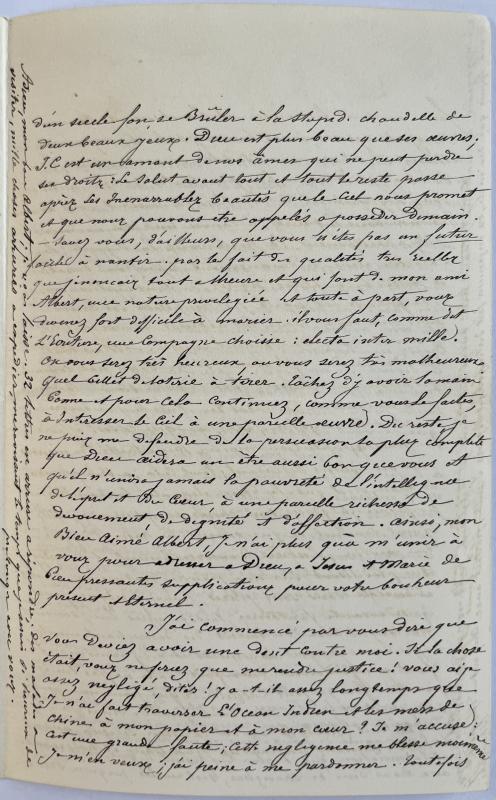 d'un siecle fou se Brûler à la stupid. chandelle de
deux beaux yeux. Dieu est plus beau que ses œuvres.
J.C est un amant de nos âmes qui ne peut perdre
ses droits: Le salut avant tout et tout le reste passe
après les Inenarrables beautés que le Ciel nous promet
et que nous pouvons être appelés a posséder Demain.
Savez vous, d'ailleurs, que vous n'êtes pas un futur
facile à nantir. par le fait de qualités très reelles
que j'enoncais tout a l'heure et qui font de mon ami
Albert, une nature privilegiée et toute à part, vous
devenez fort difficile à marier. il vous faut, comme dit
L'Ecriture, une Compagne choisie: electa inter mille.
Ou vous serez très heureux ou vous serez très malheureux
quel billet de loterie à tirer. Tâchez d'y avoir la main
bonne et pour cela continuez, comme vous le faites,
à Intéresser le Ciel à une pareille œuvre. Du reste je
ne puis me defendre de la persuasion la plus complète
que Dieu aidera un être aussi bon que vous et
qu'il n'unira jamais la pauvreté de l'intelligence
de l'esprit et du Cœur à une pareille richesse de
devouement, de dignité et d'affection. Ainsi, mon
Bien Aimé Albert, Je n'ai plus qu'à m'unir à
vous pour adresser a Dieu, a Jesus et Marie de
bien pressantes supplications pour votre bonheur
présent et Eternel.
J'ai commencé par vous dire que
Vous Deviez avoir une dent contre moi. Si la chose
était, vous ne feriez que me rendre justice! vous ai-je
assez negligé, dites! y a-t-il assez longtemps que
Je n'ai fait traverser L'Ocean Indien et les mers de
chine à mon papier et à mon cœur? Je m'accuse:
c'est une grande faute; Cette negligence me blesse moi même
Je m'en veux; j'ai peine à me pardonner. Toutefois
Adieu, mon cher Albert, Je vous laisse. 32 lettres en arrière a répondre, des malades a
visiter mille choses arriérées a expédier,